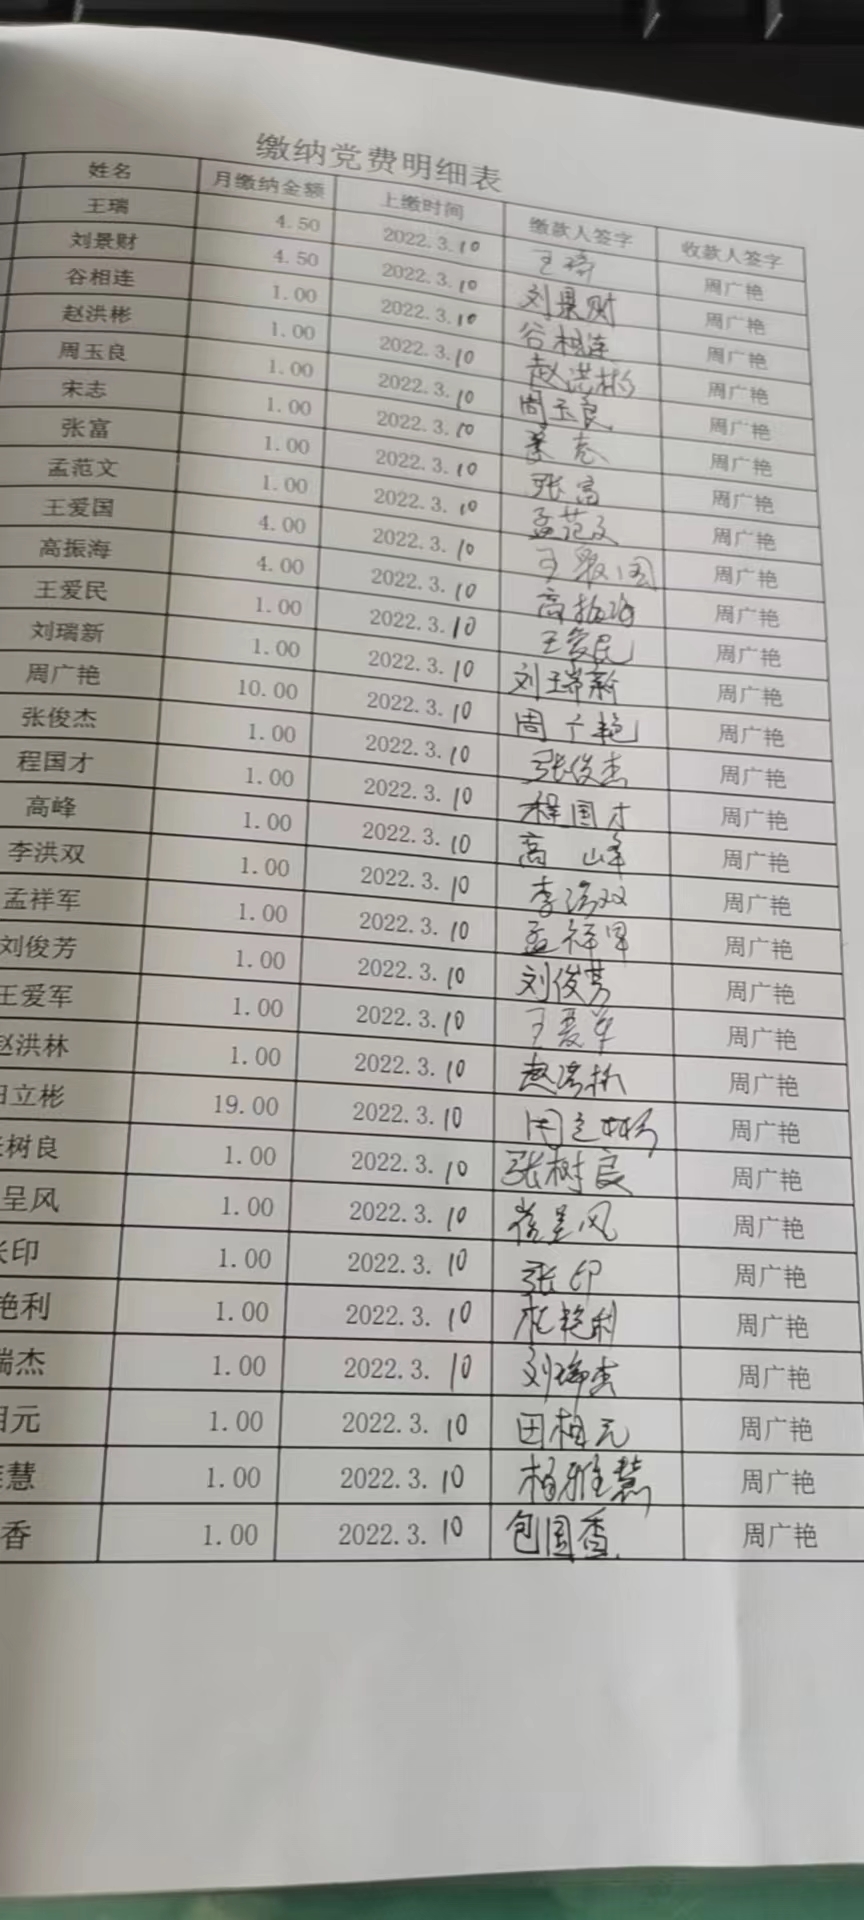 缴纳党费明细表
姓名 月缴纳金额 上缴时间 缴款人签字 收款人签字
王瑞 4.50 2022.3.10 王瑞 周广艳
刘景财 4.50 2022.3.10 刘景财 周广艳
谷相连 1.00 2022.3.10 谷相连 周广艳
赵洪彬 1.00 2022.3.10 赵洪彬 周广艳
周玉良 1.00 2022.3.10 周玉良 周广艳
宋志 1.00 2022.3.10 宋志 周广艳
张富 1.00 2022.3.10 张富 周广艳
孟范文 1.00 2022.3.10 孟范文 周广艳
王爱国 4.00 2022.3.10 王爱国 周广艳
高振海 4.00 2022.3.10 高振海 周广艳
王爱民 1.00 2022.3.10 王爱民 周广艳
刘瑞新 1.00 2022.3.10 刘瑞新 周广艳
周广艳 10.00 2022.3.10 周广艳 周广艳
张俊杰 1.00 2022.3.10 张俊杰 周广艳
程国才 1.00 2022.3.10 程国才 周广艳
高峰 1.00 2022.3.10 高峰 周广艳
李洪双 1.00 2022.3.10 李洪双 周广艳
孟祥军 1.00 2022.3.10 孟祥军 周广艳
刘俊芳 1.00 2022.3.10 刘俊芳 周广艳
王爱军 1.00 2022.3.10 王爱军 周广艳
赵洪林 1.00 2022.3.10 赵洪林 周广艳
立彬 19.00 2022.3.10 立彬 周广艳
树良 1.00 2022.3.10 张树良 周广艳
呈风 1.00 2022.3.10 崔呈风 周广艳
印 1.00 2022.3.10 张印 周广艳
艳利 1.00 2022.3.10 杜艳利 周广艳
瑞杰 1.00 2022.3.10 刘瑞杰 周广艳
元 1.00 2022.3.10 田相元 周广艳
慧 1.00 2022.3.10 杨雅慧 周广艳
香 1.00 2022.3.10 包国香 周广艳